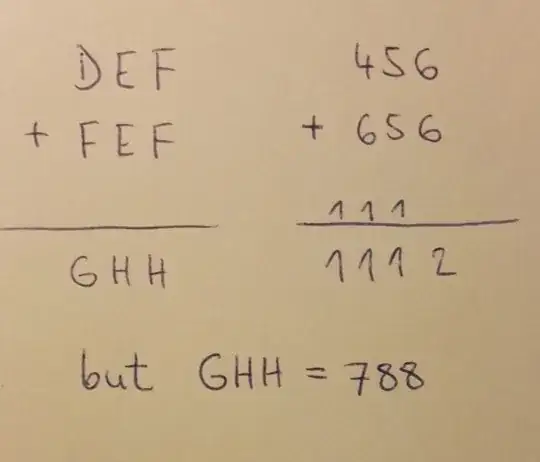 DEF 456
+ FEF + 656
111
GHH 1112
but GHH = 788